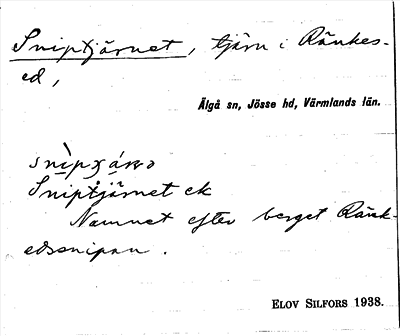 Sniptjärnet, tjärn i Ränkes-
ed,
Älgå sn, Jösse hd, Värmlands län.
Sniptjärnet ek
Namnet efter berget Ränk-
edsnipan.
ELOV SILFORS 1938.